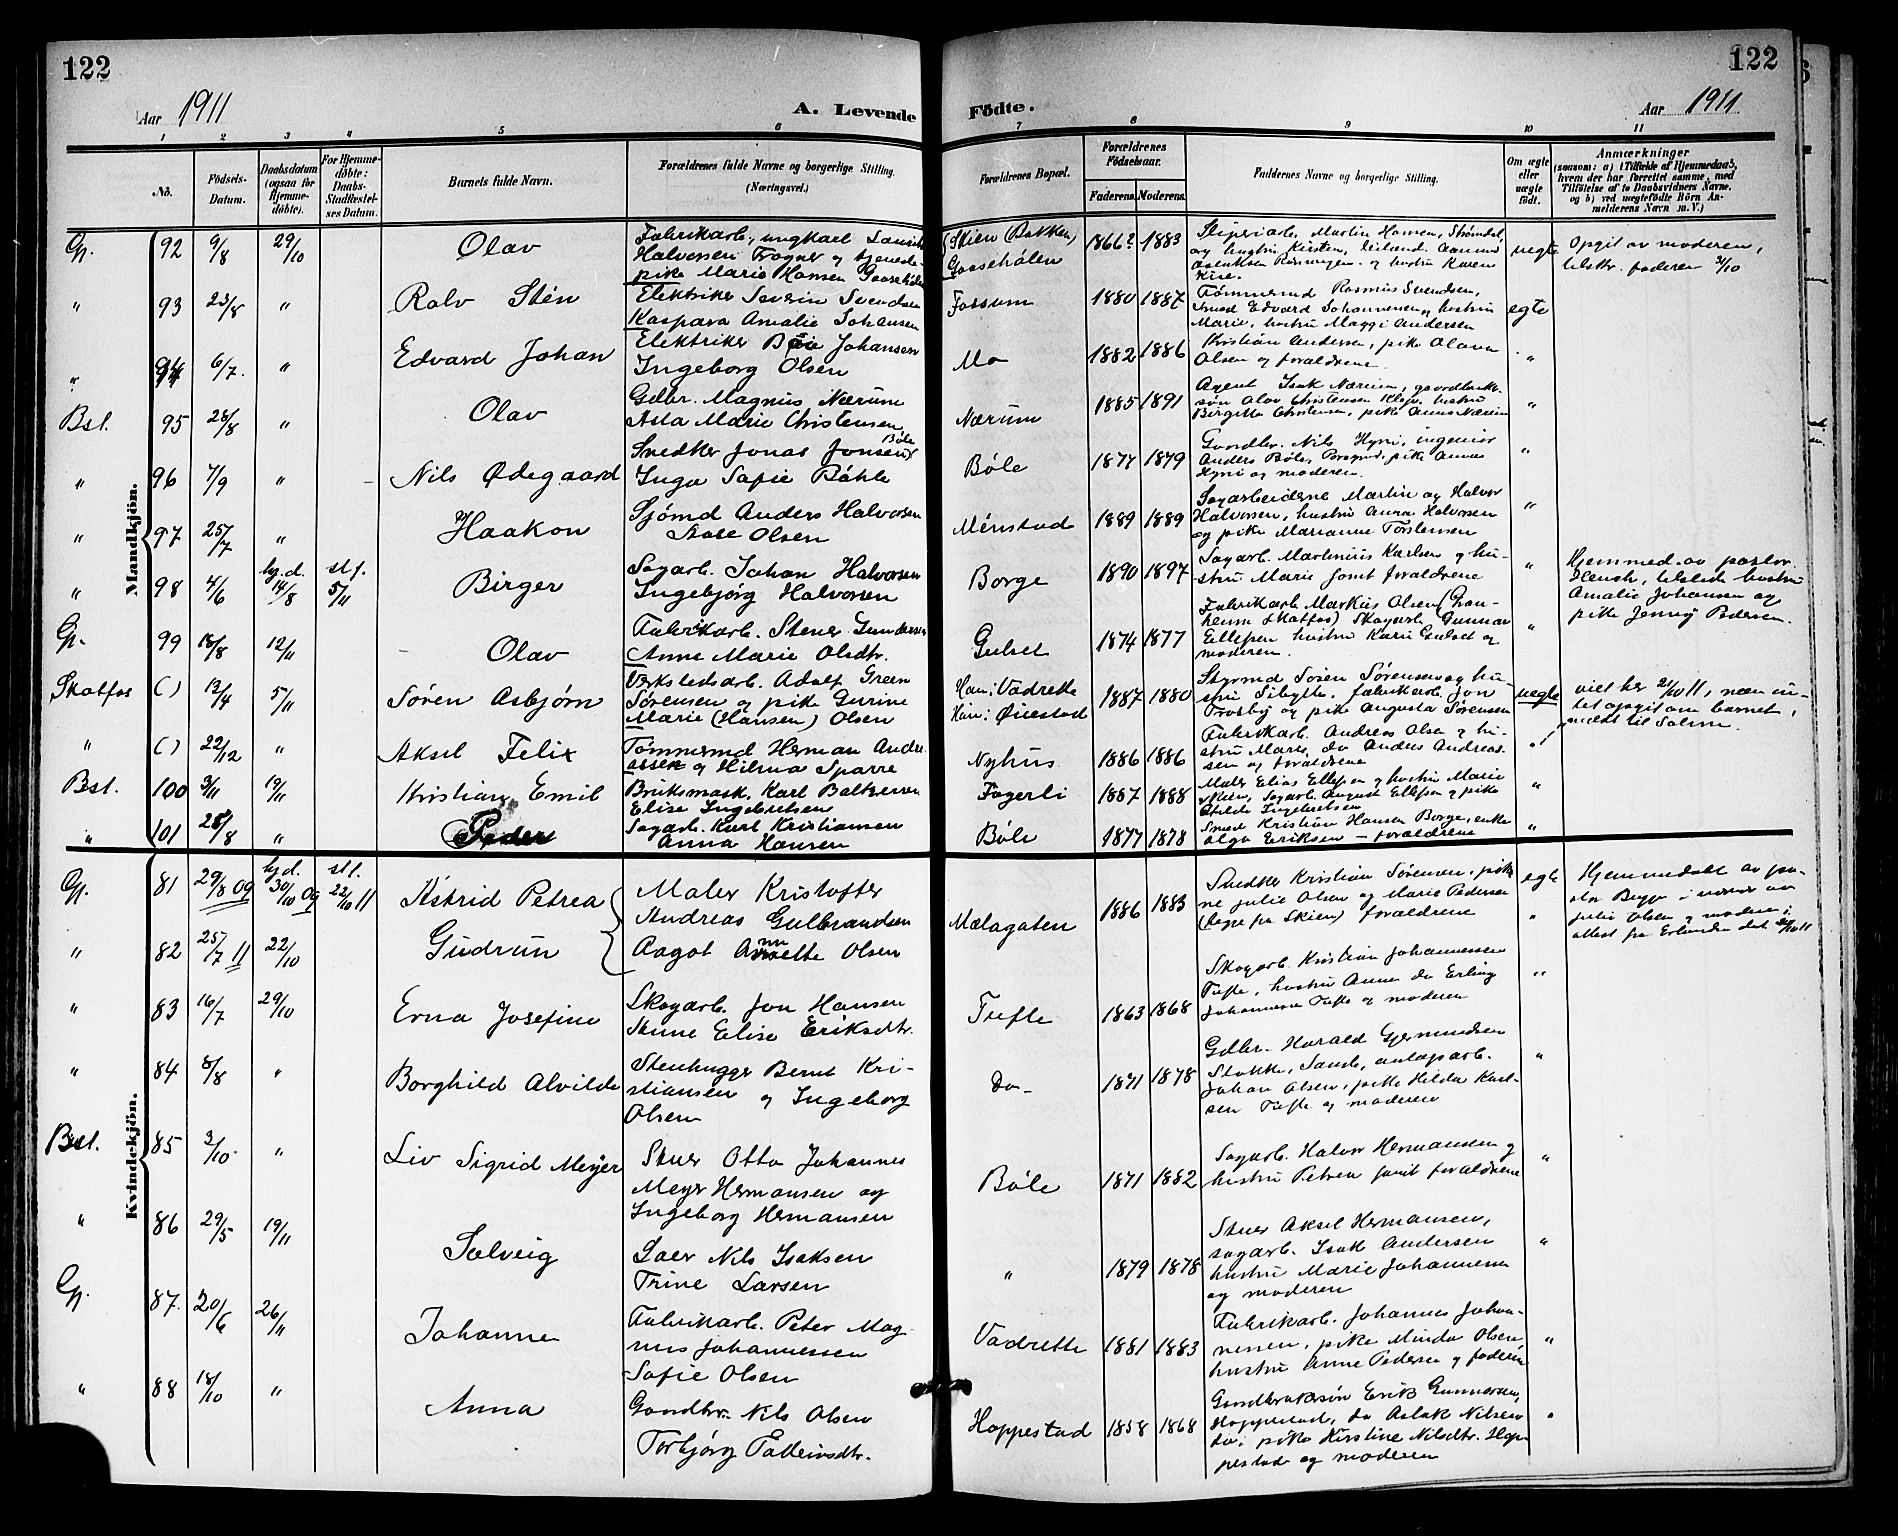 122
122
Aar 1911
A. Levende
Födte.
Aar 1911
1 2 3 4 5 6
7 8 9 10 11
No.
Födsels-Datum.
Daabsdatum (ogsaa for Hjemme-döbte).
For Hjemme-döbte: Daabs-Stadfæstel-ses Datum.
Barnets fulde Navn.
Forældrenes fulde Navne og borgerlige Stilling. (Næringsvei.)
Forældrenes Bopæl.
Forældrenes Födselsaar.
Faderens. Moderens.
Faddernes Navne og borgerlige Stilling.
Om ægte eller uægte födt.
Anmærkninger
(saasom: a) i Tilfælde af Hjemmedaab, hvem der har forrettet samme, med Tilföielse af to Daabsvidners Navne, og b) ved uægtefödte Börn An-melderens Navn m. V.)
Mandkjön.
Gp. 92 9/8 29/10 Olav
Fabrikarb., ungkarl
Halvorsen Frogner og tjeneste-
pike Marie Hansen Gaasehölen
(Skien (Bakken) Gaasehölen 1866? 1883
Martin Hansen, Strömdal,
og hustru Kirsten,
og hustru Karen
uegte
Opgit av moderen,
tilstr. faderen 3/10
" 93 23/8 " Ralv Stén
Elektriker Severin Svendsen
Kaspara Amalie Johansen
Fossum 1880 1887
Tömmermd Rasmus Svendsen,
Smed Edvard Johannesen, hustru
Marie, hustru Maggi Andersen
egte
" 94 6/7. " Edvard Johan
Elektriker Johansen
Ingeborg Olsen
Mo 1882 1886
Kristian Andersen, pike Olava
Olsen og forældrene.
"
Bst. 95 28/8 " Olav
Gdbr. Magnus Nærum
Asta Marie Christensen
Nærum 1885 1891
Agent Isak Nærum, gaardbruker-
sön Olav Christensen Klep, hustru
Birgitte Christensen, pike Anna Nærum
"
" 96 7/9 " Nils Ödegaard
Snedker Jonas Jonsen Böle
Inga Sofie Böhle
Böle 1877 1879
Gaardbr. Nils Hyni, ingeniör
Anders Böle, Porsgrund, pike Anna
Hyni og moderen.
"
" 97 25/7 " Haakon
Sjömd Anders Halvorsen
Olsen
Menstad 1889 1889
Sagarbeiderne Martin og Halvor
Halvorsen, hustru Anna Halvorsen
og pike Marianne Torstensen
"
" 98 4/6 hj.d. 14/8 stf. 5/11 Birger
Sagarb. Johan Halvorsen
Ingebjörg Halvorsen
Borge 1890 1897
Sagarb. Martinius Karlsen og hu-
stru Marie samt forældrene
"
Hjemmed. av pastor
tilstede hustru
Amalie Johansen og
pike Jenny Pedersen.
Gp. 99 18/8 12/11 Olav
Fabrikarb. Stener Gundersen
Anne Marie Olsdtr.
Gulset 1874 1877
Fabrikarb. Markus Olsen (Gran-
heim Skotfos) Skogarb. Gunnar
Ellefsen hustru Kari Gulset og
moderen.
"
Skotfos ( ) 12/4 5/11 Sören Asbjörn
Verkstedsarb. Adolf Green
Sörensen og pike Gurine
Marie (Hansen) Olsen
Han: Vadrette
Hun: Öuestad 1887 1880
Styrmd Sören Sörensen og hu-
stru Sibylle, fabrikarb. Jon
Trosby og pike Augusta Sörensen
uegte
viet her 21/10 11, men in-
tet opgit om barnet,
meldt til Solum.
" ( ) 22/12 " Aksel Felix
Tömmermd Herman Andre-
assen og Hilma Sparre
Nyhus 1886 1886
Fabrikarb. Andreas Olsen og hu-
stru Marie, do Anders Andreas-
sen og forældrene.
"
Bst. 100 3/11 19/11 Kristian Emil
Bruksmask. Karl Baltzersen
Elise Ingebretsen
Fagerli 1887 1888
Maler Elias Ellefsen og hustru Marie
Skien, Sagarb. August Ellefsen og pike
Ingebretsen
"
" 101 28/8 " Peder
Sagarb. Karl Kristiansen
Anna Hansen
Böle 1877 1878
Smed Kristian Hansen Borge, enke
Olga Eriksen - forældrene
"
Kvindekjön.
Gp. 81 29/8 09 hj.d. 30/10 09 stf. 22/10 11 Astrid Petrea
Maler Kristoffer
Andreas Gulbrandsen
" 82 25/7 11 22/10 Gudrun
Aagot Annette Olsen
Mælagaten 1886 1883
Snedker Kristian Sörensen, pike-
ne Julie Olsen og Marie Pedersen
(begge fra Skien) forældrene
egte
"
Hjemmedöbt av pa-
stor Bugge i nærvær av
Julie Olsen og moderen i
attest fra
" 83 16/7 29/10 Erna Josefine
Skogarb. Jon Hansen
Stine Elise Eriksdtr.
Tufte 1863 1868
Skogarb. Kristian Johannessen
Tufte, hustru Anne do Erling
Johannesen Tufte og moderen
"
" 84 8/8 " Borghild Alvilde
Stenhugger Bernt Kri-
stiansen og Ingeborg
Olsen
Do- 1871 1878
Gdbr. Harald Gjermundsen
Stokke, Sande, anlægsarb.
Johan Olsen, pike Hilda Karl-
sen Tufte og moderen
"
Bst. 85 3/10 " Liv Sigrid Meyer
Stuer Otto Johannes
Meyer Hermansen og
Ingeborg Hermansen
Böle 1871 1882
Sagarb. Halvor Hermansen og
hustru Petrea samt forældrene
"
" 86 29/5 19/11 Solveig
Nils Isaksen
Trine Larsen
" 1879 1878
Stuer Aksel Hermansen,
sagarb. Isak Andersen
hustru Marie Johannesen
og moderen
"
Gp. 87 20/6 26/11 Johanne
Fabrikarb. Peter Mag-
nus Johannessen
Sofie Olsen
Vadrette 1881 1883
Fabrikarb. Johannes Johan-
nesen, pike Minda Olsen
hustru Anne Pedersen og faderen
"
" 88 18/10 " Anna
Gaardbr. Nils Olsen
Torbjörg Talleivsdtr.
Hoppestad 1858 1868
Gaardbrukersön Erik Gunnarsen,
Hoppestad, do Aslak Nilsen
do; pike Kirstine Nilsdtr. Hop-
pestad og moderen
"